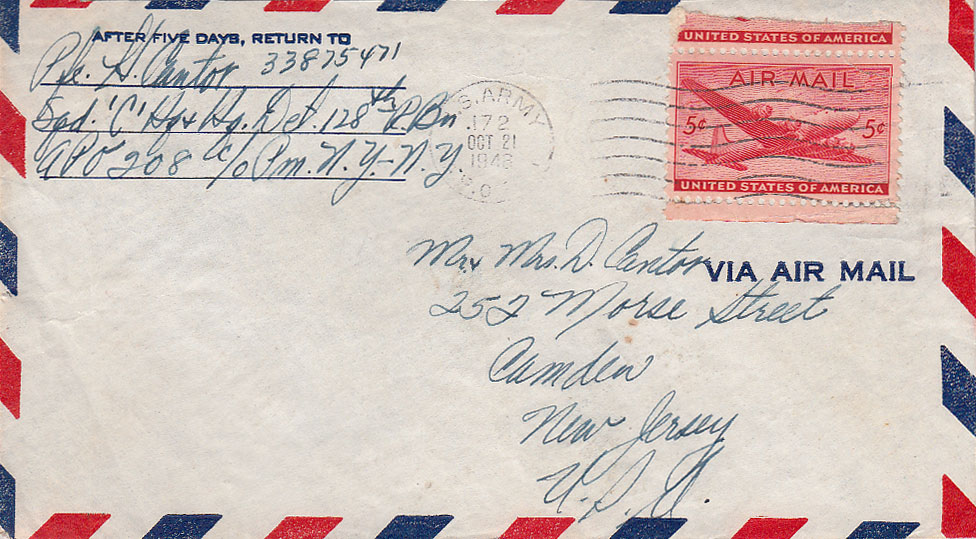 AFTER FIVE DAYS, RETURN TO
Pfc. H. Cantor 33875471
Sqd. 'C' Hq & Hq. Det. 128th R. Bn
APO 208 c/o Pm. N.Y.-N.Y.
U.S. ARMY
172
OCT 21
1946
A.P.O.
UNITED STATES OF AMERICA
AIR MAIL
5¢ 5¢
UNITED STATES OF AMERICA
Mr & Mrs. D. Cantor
VIA AIR MAIL
252 Morse Street
Camden
New Jersey
U.S.A.